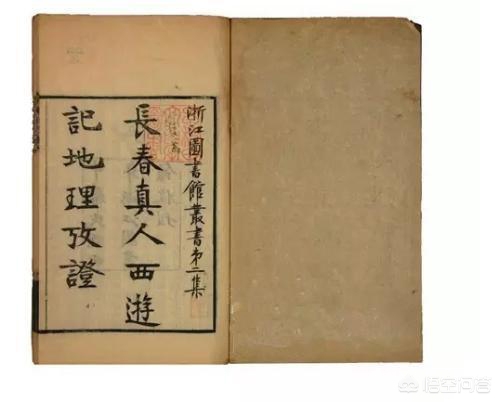 浙江圖書館叢書第二集
長春真人西遊
記地理攷證
悟空问答